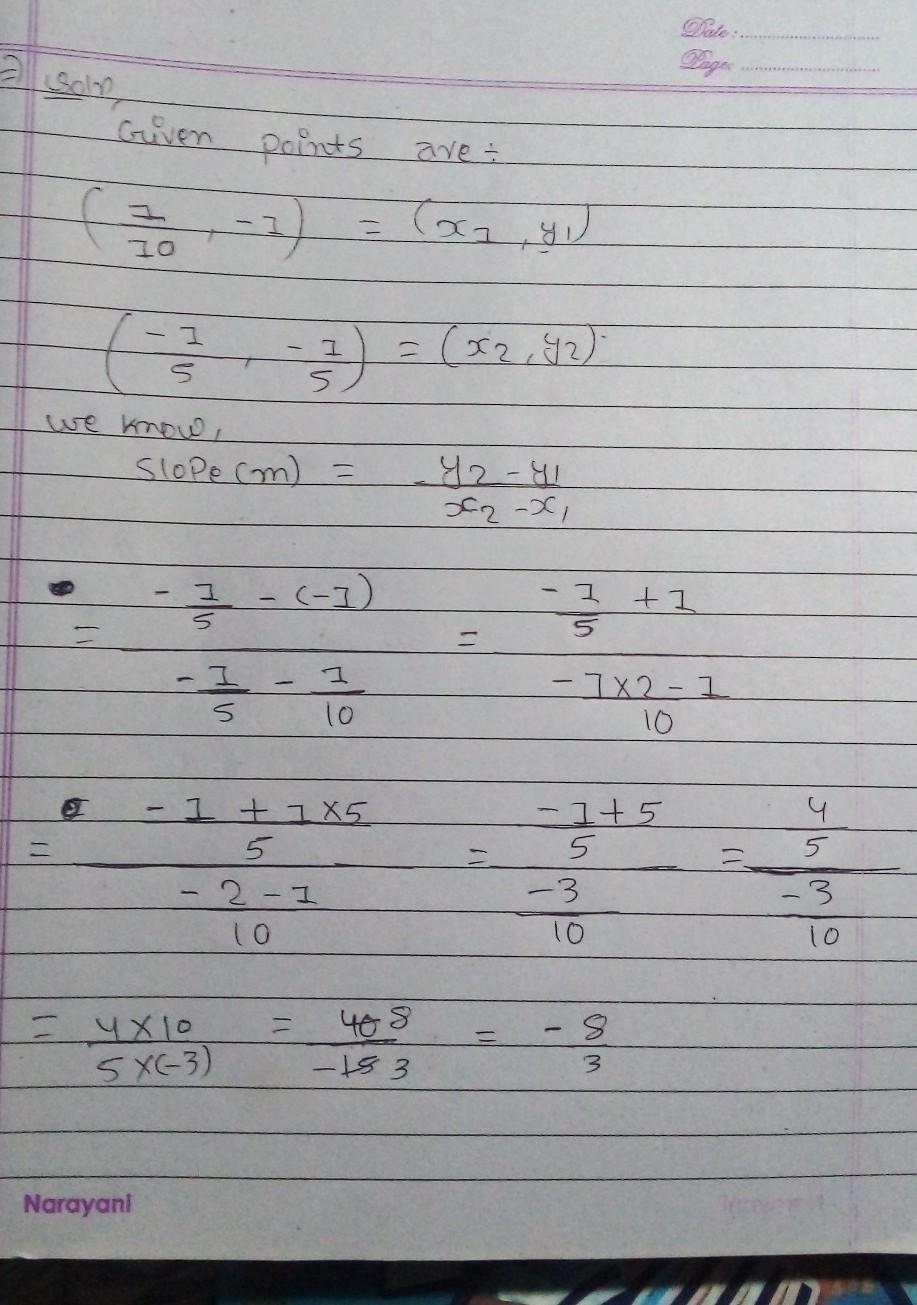 Date:
Page:
⇒ Soln,
Given points are ÷
(1/10, -1) = (x1, y1)
(-1/5, -1/5) = (x2, y2).
we know,
slope(m) = y2 - y1 / x2 - x1
= (-1/5 - (-1)) / (-1/5 - 1/10) = (-1/5 + 1) / ((-1×2 - 1)/10)
= ((-1 + 1×5)/5) / ((-2 - 1)/10) = ((-1+5)/5) / (-3/10) = (4/5) / (-3/10)
= 4×10 / 5×(-3) = 40 8 / -15 3 = -8/3
Narayani